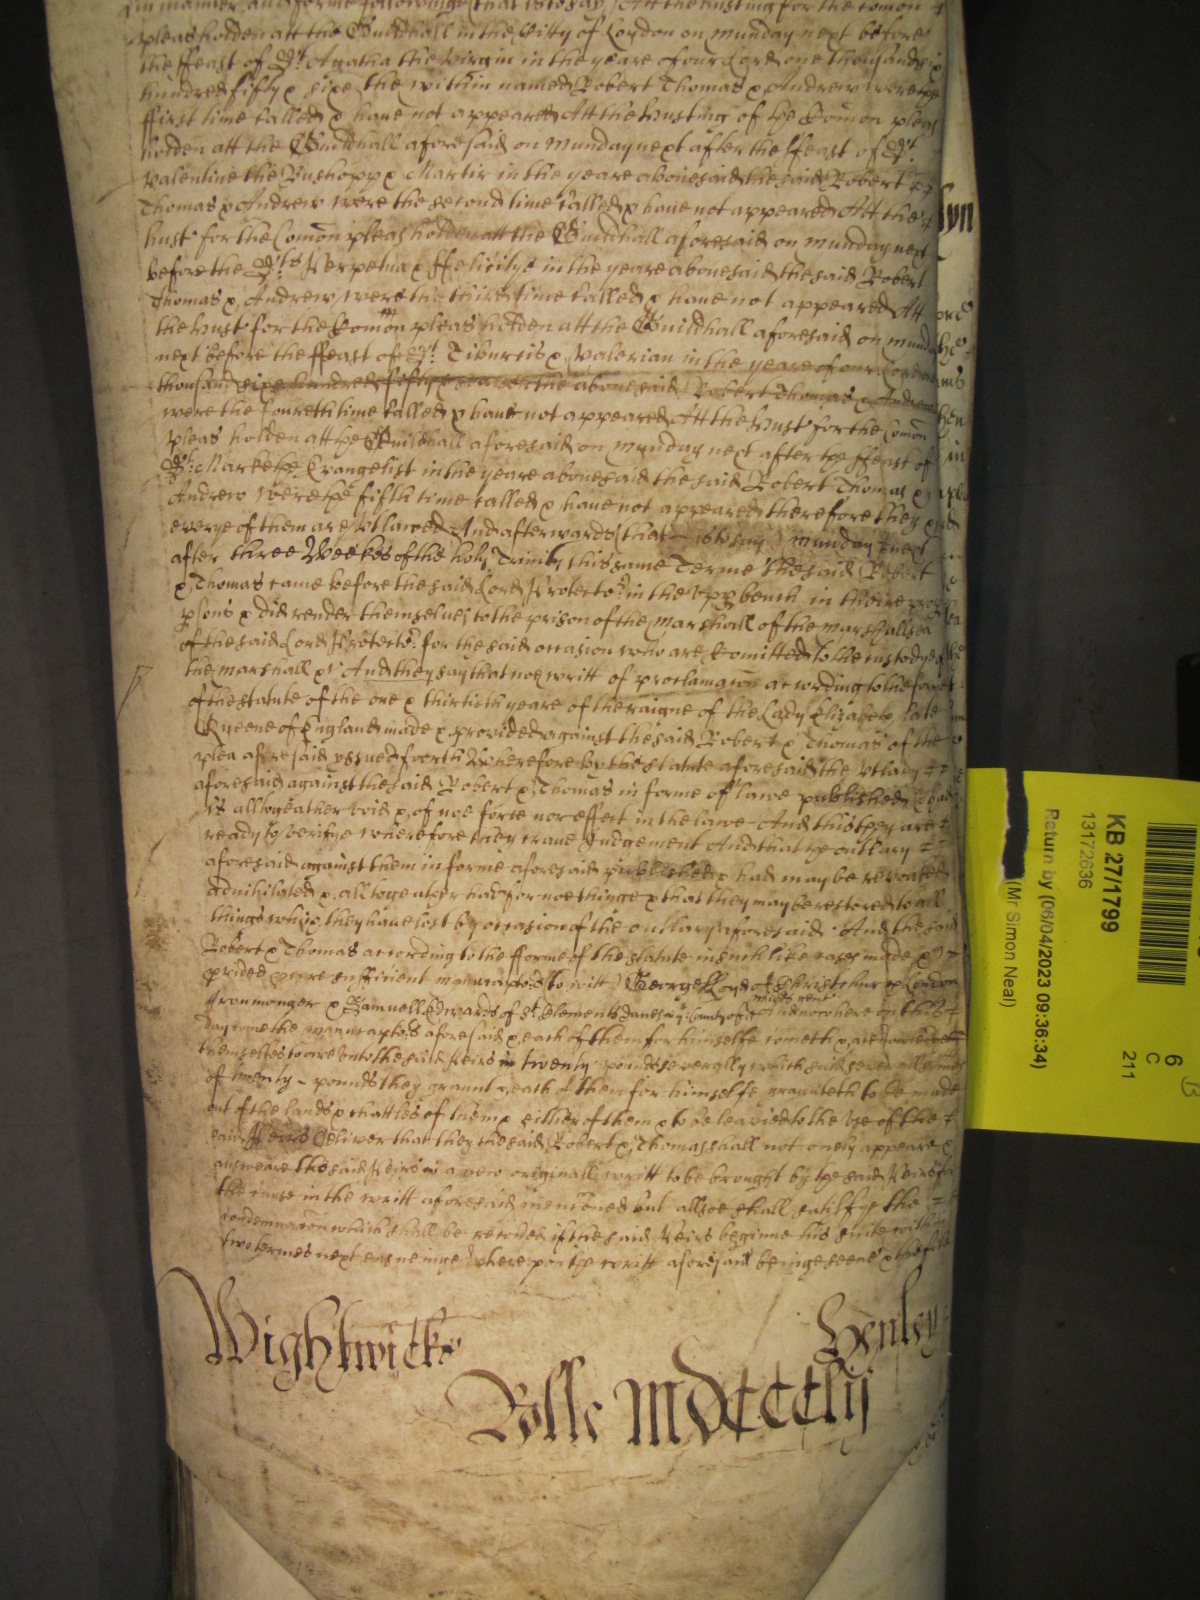 in manner and forme followinge that is to say Att the husting for the Com̄on
pleas holden att the Guildhall in the Citty of London on munday next before
the ffeast of St. Agatha the virgin in the yeare of our Lord one thousand
hundred fifty & sixe the within named Robert Thomas & Andrew were the
ffirst time called & have not appeared Att the husting of the Com̄on pleas
holden att the Guildhall aforesaid on munday next after the ffeast of St.
Valentine the Bushopp & Martir in the yeare abovesaid the said Robert
Thomas & Andrew were the second time called & have not appeared Att the
hust' for the Com̄on pleas holden att the Guildhall aforesaid on munday next
before the Sts Perpetua & ffelicitye in the yeare abovesaid the said Robert
Thomas & Andrew were the third time called & have not appeared Att
the hust' for the Com̄on pleas holden att the Guildhall aforesaid on munday
next before the ffeast of St. Tiburtis & Valerian in the yeare of our Lord one
thousand sixe hundred fifty & seaven the abovesaid Robert Thomas & Andrew
were the fourth time called & have not appeared Att the hust' for the Com̄on
pleas holden att the Guildhall aforesaid on munday next after the ffeast of
St. Marke the Evangelist in the yeare abovesaid the said Robert Thomas &
Andrew were the fifth time called & have not appeared therefore they &
everye of them are utlawed And afterwards that is to say munday next
after three Weekes of the holy Trinity this same Terme the said Robert
& Thomas came before the said Lord Protector in the upp bench in theire prop
psons & did render themselves to the prison of the marshall of the marshallsea
of the said Lord Protector for the said occasion who are Com̄itted to the custodye of
the marshall &c And they say that noe writt of proclamac̄on according to the forme
of the statute of the one & thirtieth yeare of the raigne of the Lady Elizabeth late
Queene of England made & provided against the said Robert & Thomas of the
plea aforesaid yssued foorth Wherefore by the statute aforesaid the utlary
aforesaid against the said Robert & Thomas in forme of lawe published & had
is alltogeather void & of noe force nor effect in the lawe And this they are
ready to verifye wherefore they crave Judgement And that the outlary
aforesaid against them in forme aforesaid published & had may be revoaked
adnihilated & alltogeather had for nothinge & that they may be restored to all
things which they have lost by occasion of the outlary aforesaid And the said
Robert & Thomas according to the fforme of the statute in such like case made &
pvided were sufficient manucaptors to witt George Lloyd of Christchurch London
Ironmonger & Samuell Edwards of St. Clements Danes in the County of midds gent And now here on this
day come the manucaptors aforesaid & each of them for himselfe cometh & acknowledgeth
themselves to owe unto the said Peirs in twenty pounds severally which said severall sum̄es
of twenty pounds they graunt & each of them for himselfe graunteth to be made
out of the lands & chattles of them & either of them & to be leavied to the use of the
said Peirs Oliver that they the said Robert & Thomas shall not onely appeare &
answeare the said Peirs in a new originall writt to be brought by the said Peirs for
the cause in the writt aforesaid menc̄oned but allsoe shall satisfye the
condemnac̄on which shall be recoverd if the said Peirs beginne his suite within
two termes next ensueinge Whereupon the writt aforesaid beinge seene &
Wightwicke
Henley
Rolle MDCCCLII
KB 27/1799
13172636
Return by (06/04/2023 09:36:34)
(Mr Simon Neal)
6
C
211